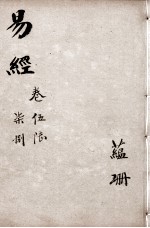 易經
卷伍陸
柒捌
蘊珊